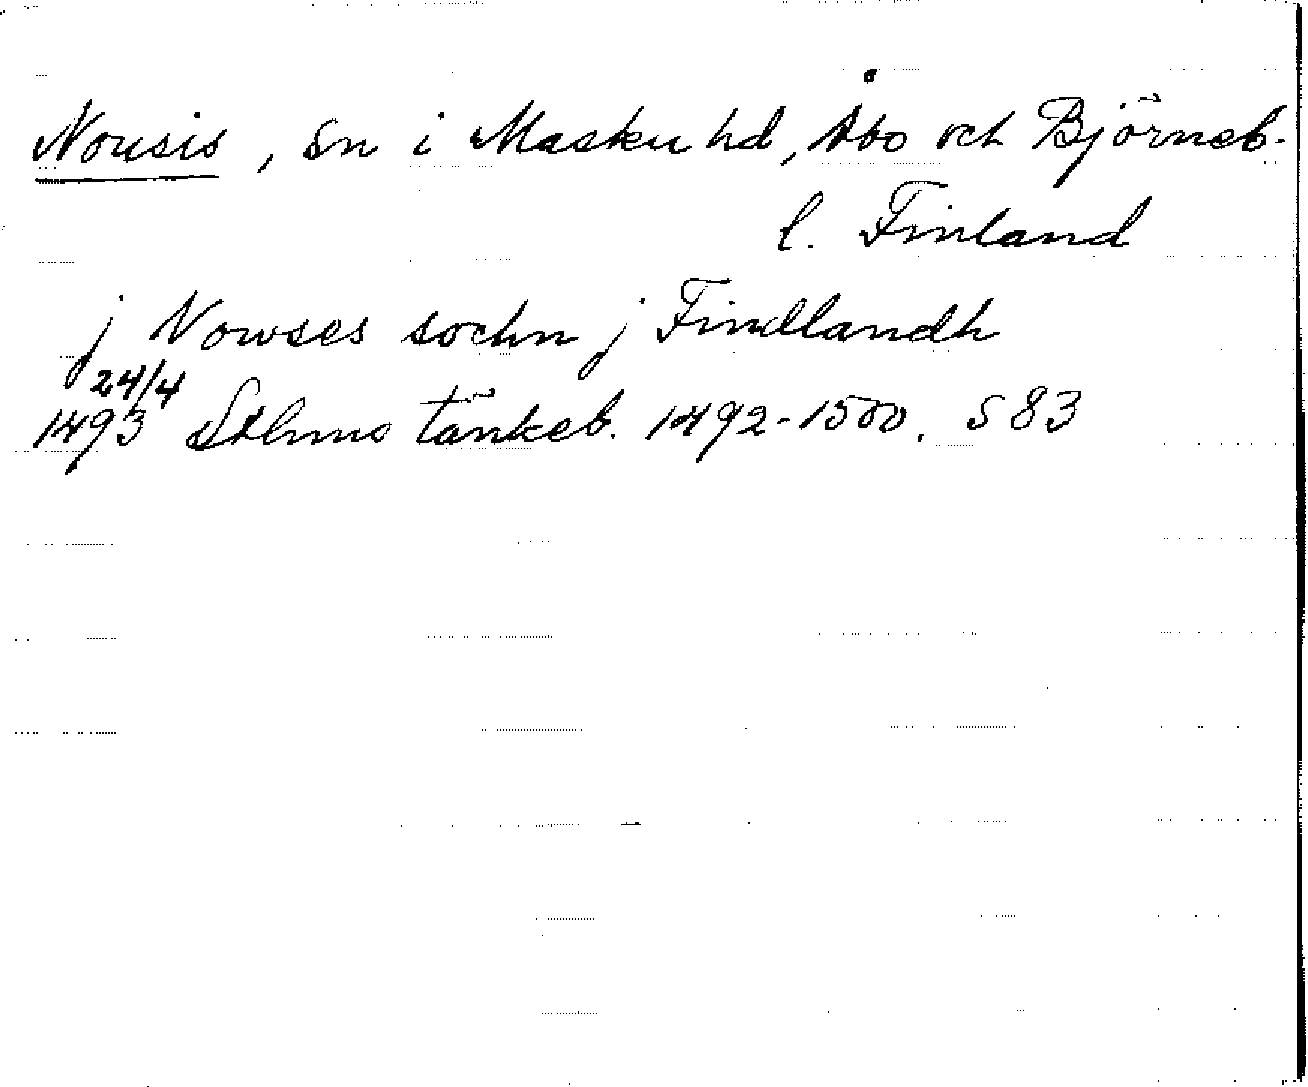 Nousis, Sn i Masku hd, Åbo och Björneb.
l. Finland
j Nowses sochn j Findlandh
24/4
1493 Sthms tänkeb. 1492-1500. S 83